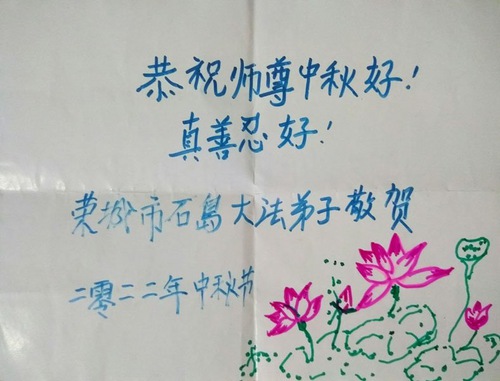 恭祝师尊中秋好!
真善忍好!
荣城市石岛大法弟子敬贺
二零二二年中秋节